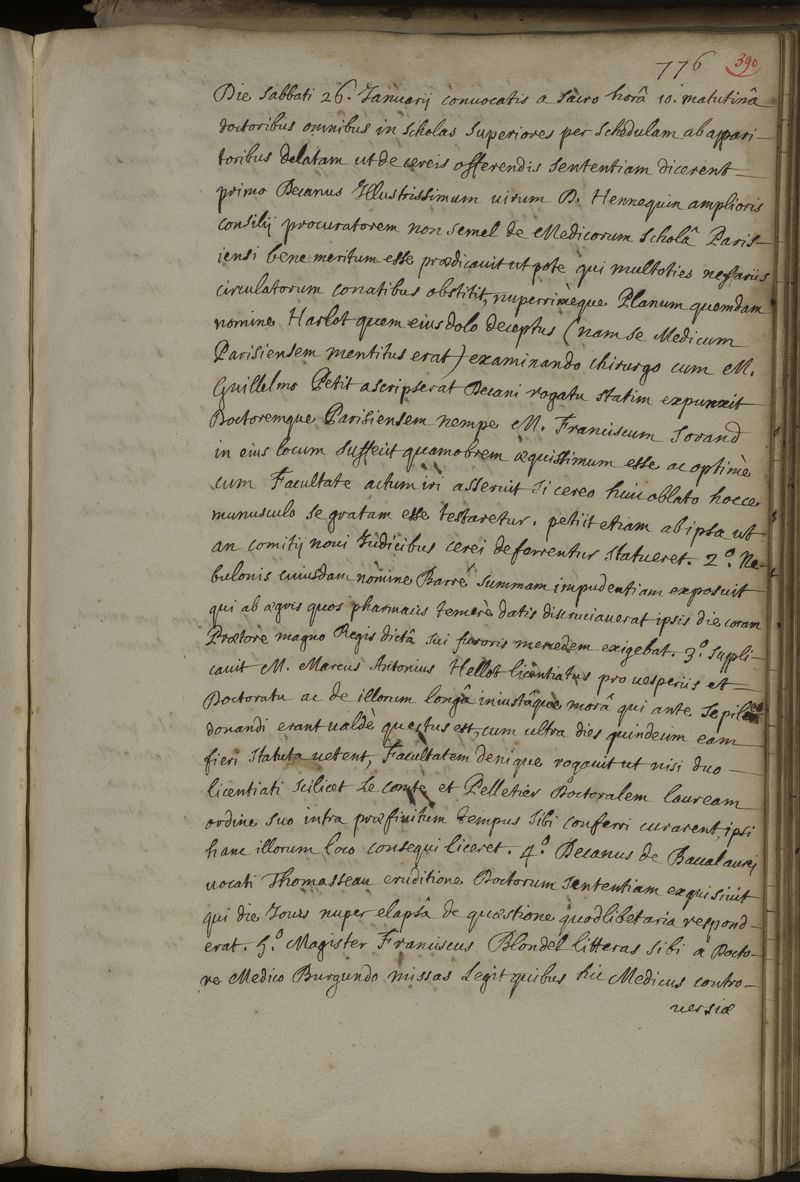 776 390
Die Sabbati 26. Januarij convocatis a sacro horâ 10. matutinâ
doctoribus omnibus in scholas superiores per schedulam ab appari-
toribus delatam ut de cereis offerendis sententiam dicerent
primo Decanus Illustrissimum uirum D. Hennequin amplioris
consilij procuratorem non semel de Medicorum scholâ Paris-
iensi bene meritum esse prædicauit ut pote qui multoties nefariis
circulatorum conatibus obstitit, nuperrimèque Planum quemdam
nomine Harlot quem eius dolo deceptus (nam se Medicum
Parisiensem mentitus erat) examinando chirurgo cum M.
Guillelmo Petit ascripserat Decani rogatu statim expunxit
Doctoremque Parisiensem nempe M. Franciscum
in eius locum suffecit quamobrem æquissimum esse ac optimè
cum Facultate actum iri asseruit si cereo huic oblato hocce
munusculo se gratam esse testaretur. petiit etiam ab ipsa ut
an comitij noui Judicibus cerei deferrentur statueret. 2.º Ne-
bulonis cuiusdam nomine Barré summam impudentiam exposuit
qui ab ægris quos pharmacis temerè datis discruciauerat ipsis die coram
Prætore magno Regis dictâ sui furoris mercedem exigebat. 3.º suppli-
cauit M. Marcus Antonius Hellot licentiatus pro uesperiis et
Doctoratu ac de illorum longâ iniustâque morâ qui ante se
donandi erant ualdè questus est, cum ultra dies quindecim eam
fieri statuta uetent, Facultatem denique rogauit ut nisi duo
licentiati scilicet Le comte et Pelletier Doctoralem lauream
ordine suo intra præfinitum tempus sibi conferri curarent, ipsi
hanc illorum loco consequi liceret. 4.º Decanus de Baccalaurej
uocati Thomasseau eruditione Doctorum sententiam exquisiuit
qui die Jouis nuper elapsâ de quæstione quodlibetaria respond-
erat. 5.º Magister Franciscus Blondel litteras sibi a Docto-
re Medico Burgundo missas legit quibus hic Medicus contro-
uersiæ